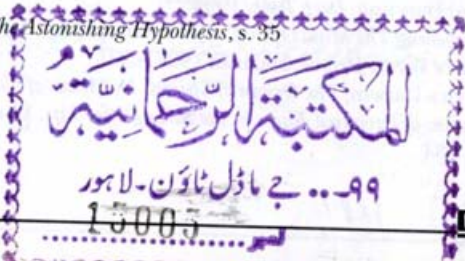 he Astonishing Hypothesis, s. 35
المكتبة الرحمانية
۹۹... جے ماڈل ٹاؤن۔ لاہور
نمبر 15005